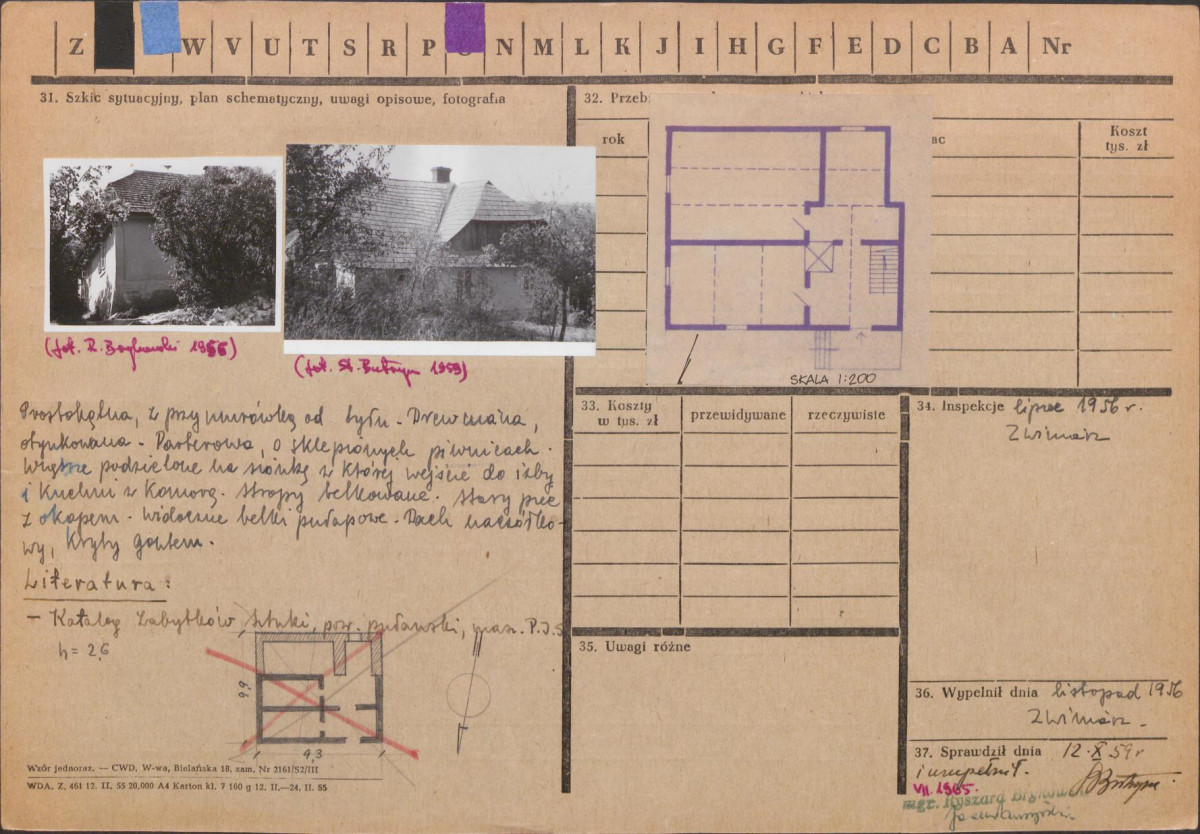 Z W V U T S R P O N M L K J I H G F E D C B A Nr
31. Szkic sytuacyjny, plan schematyczny, uwagi opisowe, fotografia
32. Przebi
rok
ac
Koszt
tys. zł
SKALA 1:200
(fot. R. 1956)
(fot. St. Butryn 1959)
Prostokątna, z przymurówką od tyłu. Drewniana,
otynkowana. Parterowa, o sklepionych piwnicach.
Wnętrze podzielone na sionkę z której wejście do izby
i kuchni z komorą. Stropy belkowane. Stary piec
z okapem. Widoczne belki pułapowe. Dach naczółko-
wy, kryty gontem.
Literatura:
- Katalog Zabytków Sztuki, pow. puławski, masz. P.I.S
h = 2,6
9,9
9,3
Wzór jednoraz. — CWD, W-wa, Bielańska 18, zam. Nr 2161/S2/III
WDA. Z. 461 12. II. 55 20,000 A4 Karton kl. 7 160 g 12. II.—24. II. 55
33. Koszty
w tys. zł
przewidywane
rzeczywiste
34. Inspekcje lipiec 1956 r.
35. Uwagi różne
36. Wypełnił dnia listopad 1956
37. Sprawdził dnia 12.X.59 r
i uzupełnił.
VII. 1965.
mgr. Ryszard